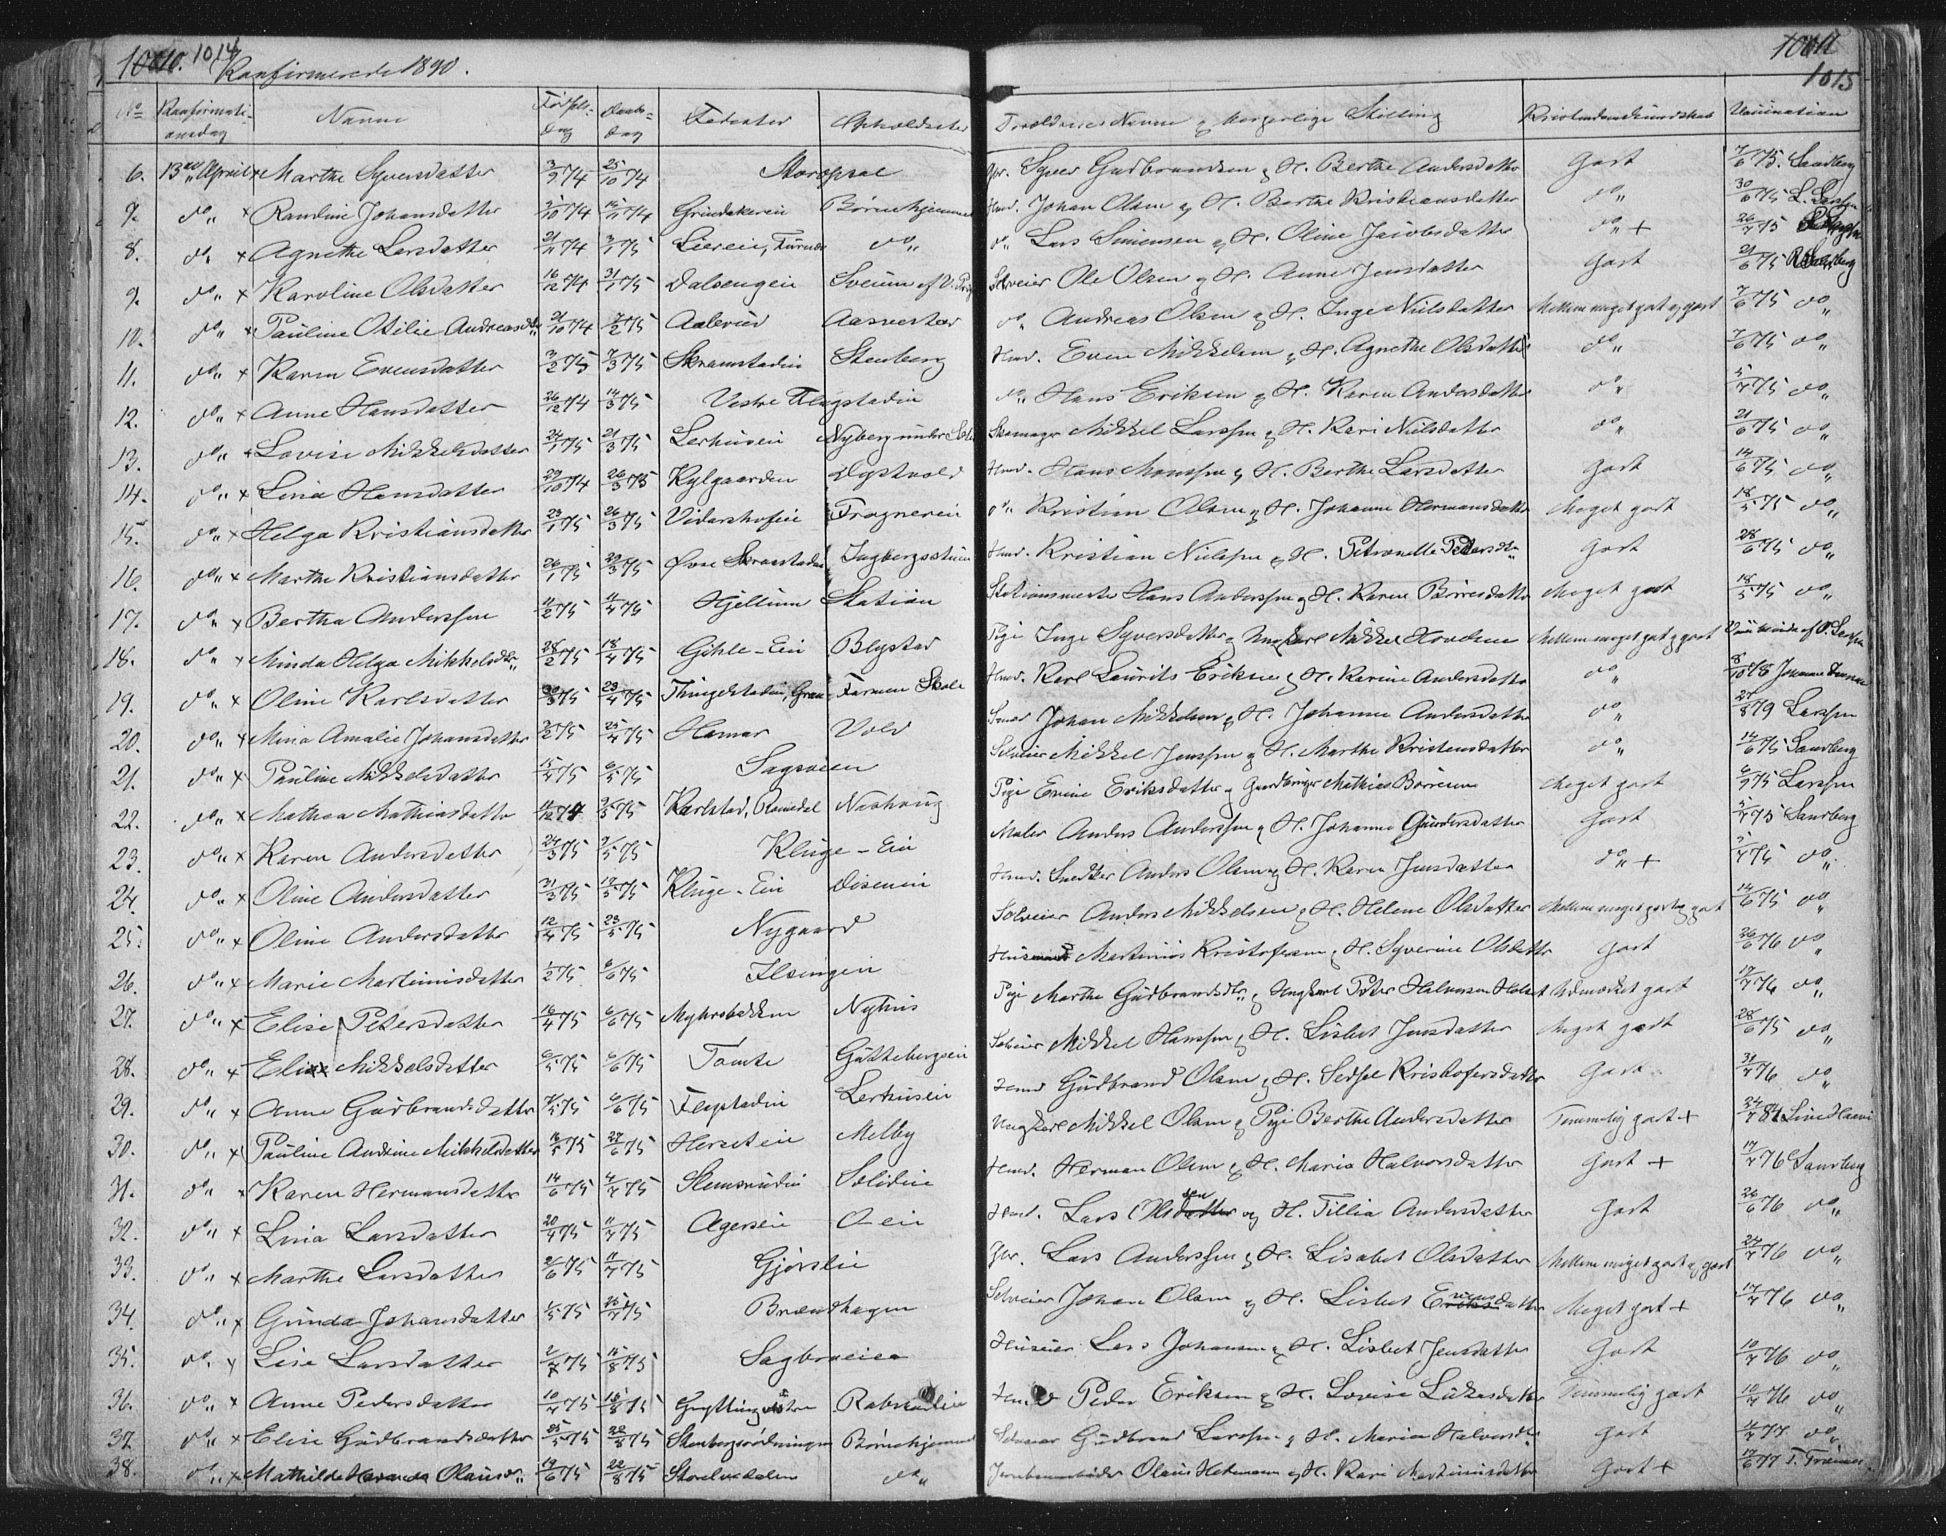 1014
Konfirmerede 1890.
1015
No Konfirmationsdag Navne Fødselsdag Daabsdag Fødested Opholdssted Forældrenes Navne og borgerlige Stilling Kristendomskundskab Vaccination
6. 13de April x Marthe Syversdatter 3/9 74 25/10 74 Storopsal Gbr. Syver Gudbrandsen & H. Berthe Andersdatter Godt 7/6 75. Sandberg
7. do „ x Randine Johansdatter Grindakereie Børnehjemmet Hmd. Johan Olsen og H. Berthe Kristiansdatter do „ 30/6 75 L. Larssen
8. do „ x Agnethe Larsdatter 3/1 75 Liereie, Furnes do „ do „ Lars Simensen & H. Oline Jacobsdatter do „ + 26/7 75
9. do „ x Karoline Olsdatter 16/12 74 31/1 75 Dalsengeie Sveum Selveier Ole Olsen & H. Anne Jensdatter Godt 21/6 75
10. do „ x Pauline Otilie Andreasdtr. 21/10 74 7/2 75 Aalerud Aasvestad do „ Andreas Olsen & H. Inge Nielsdatter Mellem meget godt og godt 7/6 75 do „
11. do „ x Karen Evensdatter 3/2 75 7/3 75 Skramstadeie Stenberg Hmd. Even Mikkelsen & H. Agnethe Olsdatter do „ 7/6 75 do „
12. do „ x Anne Hansdatter 26/12 74 14/3 75 Vestre Flagstadeie do „ Hans Eriksen & H. Karen Andersdatter do „ 5/7 75 do „
13. do „ x Lovise Mikkelsdatter 24/1 75 21/3 75 Lerhuseie Nyberg under Skomager Mikkel Larssen & H. Kari Nielsdatter do „ 21/6 75 do „
14. do „ x Lina Hansdatter 29/10 74 26/3 75 Kylgaarden Dystvold Hmd. Hans Monssen & H. Berthe Larsdatter Godt 14/6 75 do „
15. do „ x Helga Kristiansdatter 23/1 75 26/3 75 Vidarshofeie Frognereie do „ Kristian Olsen & H. Johanne Hermansdatter Meget godt 18/5 75 do „
16. do „ x Marthe Kristiansdatter 26/1 75 29/3 75 Øvre Skramstadeie Ingbergsstuen Hmd. Kristian Nielsen & H. Petronelle Pedersdtr. Godt 28/6 75 do „
17. do „ x Bertha Anderssen 11/2 75 11/4 75 Hjellum Station Stationsmester Hans Anderssen & H. Karen Børresdatter Meget godt 18/5 75 do „
18. do „ x Minda Helga Mikkelsdtr. 28/2 75 18/4 75 Gihle-Eie Blystad Pige Inge Syversdatter & Ungkarl Mikkel Hovdene Mellem meget godt & godt
19. do „ x Oline Karlsdatter 23/4 75 Thingelstadeie, Gran Farmen Skole Hmd. Karl Laurits Eriksen & H. Karine Andersdatter do „ 8/10 78
20. do „ x Mina Amalie Johansdatter 3/2 75 25/4 75 Hamar Vold Smed Johan Mikkelsen & H. Johanne Andersdatter do „ 27/8 79 Larssen
21. do „ x Pauline Mikkelsdatter 6/5 75 Sagveien Selveier Mikkel Jenssen & H. Marthe Kristensdatter do „ 14/6 75 Sandberg
22. do „ x Mathea Mathiasdatter 11/12 74 Karlstad, Romedal Nashoug Pige Eveine Eriksdatter & Gaardbruger Mathias Børresen Meget godt 6/9 75 Larssen
23. do „ x Karen Andersdatter 24/3 75 9/5 75 Kluge-Eie Maler Anders Anderssen & H. Johanne Gundersdatter Godt 5/7 75 Sandberg
24. do „ x Oline Andersdatter 31/3 75 17/5 75 Kluge-Eie Diseneie Hmd. Snedker Anders Olsen og H. Karen Jensdatter do „ + 5/7 75 do „
25. do „ x Oline Andersdatter 12/4 75 23/5 75 Nygaard Selveier Anders Mikkelsen & H. Helene Olsdatter Mellem meget godt og godt 14/6 75 do „
26. do „ x Marie Martinusdatter 1/2 75 6/6 75 Ilsengen Husmand Martinus Kristofersen & H. Syverine Olsdatter Godt 26/6 76 do „
27. do „ x Elise Petersdatter 16/4 75 6/6 75 Myhrsbakken Nyhus Pige Marthe Gudbrandsdtr. & Ungkarl Peter Halvorsen Holset Udmærket godt 17/7 76 do „
28. do „ x Elise Mikkelsdatter 6/5 75 6/6 75 Tomte Guttebergseie Selveier Mikkel Hanssen & H. Lisbet Jensdatter Meget godt 28/6 75 do „
29. do „ x Anne Gudbrandsdatter 6/6 75 Flagstadeie Lerhuseie Hmd Gudbrand Olsen & H. Sidsel Kristofersdatter Godt 31/7 76 do „
30. do „ x Pauline Andrine Mikkelsdatter 16/5 75 27/6 75 Herseteie Melby Ungkarl Mikkel Olsen & Pige Berthe Andersdatter Temmelig godt +
31. do „ x Karen Hermansdatter 14/6 75 4/7 75 Slemsrudeie Solideie Hmd. Herman Olsen & H. Maria Halvorsdatter Godt + 17/7 76 Sandberg
32. do „ x Lina Larsdatter 20/4 75 11/7 75 Agerseie O-eie Hmd. Lars Olsen og H. Tillia Andersdatter Godt 26/6 76 do „
33. do „ x Marthe Larsdatter 2/6 75 11/7 75 Gjørslie Gbr. Lars Anderssen & H. Lisabet Olsdatter Mellem meget godt & godt 24/7 76 do „
34. do „ x Gunda Johansdatter 1/5 75 25/7 75 Brændhagen Selveier Johan Olsen & H. Lisbet Evensdatter Meget godt + 17/7 76 do „
35. do „ x Lise Larsdatter 2/7 75 15/8 75 Sagbraeien Huseier Lars Johansen & H. Lisbet Jensdatter Godt 10/7 76 do „
36. do „ x Anne Pedersdatter 10/7 75 15/8 75 Hmd Peder Eriksen & H. Lovise Lukasdatter Temmelig godt 10/7 76 do „
37. do „ x Elise Gudbrandsdatter 25/5 75 22/8 75 Stenbergsrødningen Børnehjemmet Selveier Gudbrand Larssen & H. Maria Halvorsdtr. Godt do „
38. do „ x Mathilde Olausdtr. 19/6 75 22/8 75 Storelvedalen do „ Olaus Hermansen & H. Kari Martinusdatter Godt + 17/6 77